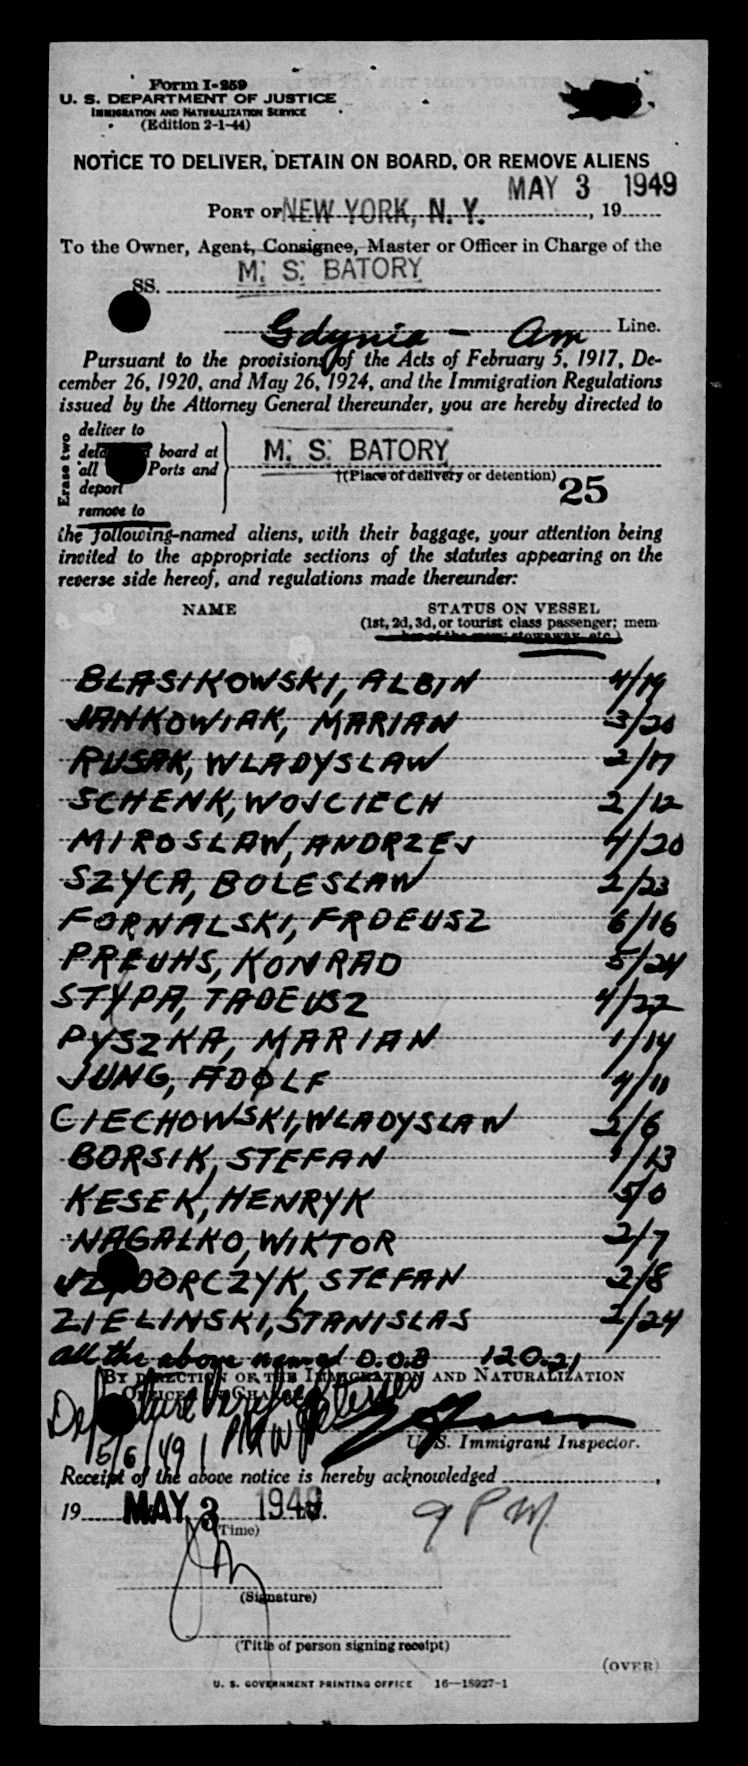 Form I-259
U. S. DEPARTMENT OF JUSTICE
IMMIGRATION AND NATURALIZATION SERVICE
(Edition 2-1-44)
NOTICE TO DELIVER, DETAIN ON BOARD, OR REMOVE ALIENS
MAY 3 1949
PORT OF NEW YORK, N. Y. , 19
To the Owner, Agent, Consignee, Master or Officer in Charge of the
SS. M. S. BATORY
Gdynia - Am Line.
Pursuant to the provisions of the Acts of February 5, 1917, De-
cember 26, 1920, and May 26, 1924, and the Immigration Regulations
issued by the Attorney General thereunder, you are hereby directed to
Erase two
deliver to
board at
all Ports and
deport
remove to
M. S. BATORY
†(Place of delivery or detention)
25
the following-named aliens, with their baggage, your attention being
invited to the appropriate sections of the statutes appearing on the
reverse side hereof, and regulations made thereunder:
NAME STATUS ON VESSEL
(1st, 2d, 3d, or tourist class passenger; mem-
ber of the crew; stowaway, etc.)
BLASIKOWSKI, ALBIN 4/19
JANKOWIAK, MARIAN 3/20
RUSAK, WLADYSLAW 2/17
SCHENK, WOJCIECH 2/12
MIROSLAW, ANDRZEJ 4/20
SZYCA, BOLESLAW 2/23
FORNALSKI, FRDEUSZ 6/16
PREUHS, KONRAD 5/24
STYPA, TADEUSZ 4/22
PYSZKA, MARIAN 1/14
JUNG, ADOLF 4/11
CIECHOWSKI, WLADYSLAW 2/6
BORSIK, STEFAN 1/13
KESEK, HENRYK 5/0
NAGALKO, WIKTOR 2/7
STEFAN 2/8
ZIELINSKI, STANISLAS 2/24
all the above named D.O.B 120.21
BY DIRECTION OF THE IMMIGRATION AND NATURALIZATION
OFFICER IN CHARGE
Departure Verified
5/6/49
U. S. Immigrant Inspector.
Receipt of the above notice is hereby acknowledged ,
19 MAY 3 1949
9 PM
(Time)
(Signature)
(Title of person signing receipt)
(OVER)
U. S. GOVERNMENT PRINTING OFFICE 16—18927-1